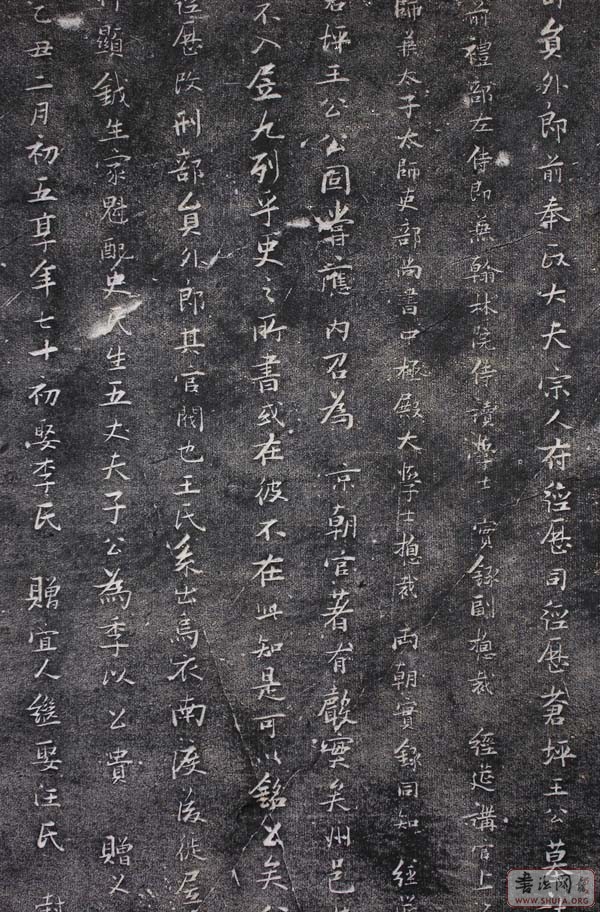 員外郎前奉政大夫宗人府經歷司經歷蒼坪王公墓
前禮部左侍郎兼翰林院侍讀學士 實錄副總裁 經筵講官上
師兼太子太師吏部尚書中極殿大學士總裁 兩朝實錄同知 經
坪王公公固嘗應內召為 京朝官著有厥實矣州邑
不入登九列乎史之所書或在彼不在此知是可以銘公矣
經歷改刑部員外郎其官閥也王氏系出烏衣南渡後徙
顯鉞生家魁配史氏生五丈夫子公為季以公貴 贈文
乙丑二月初五享年七十初娶李氏 贈宜人繼娶汪氏 封
書法网
WWW.SHUFA.ORG